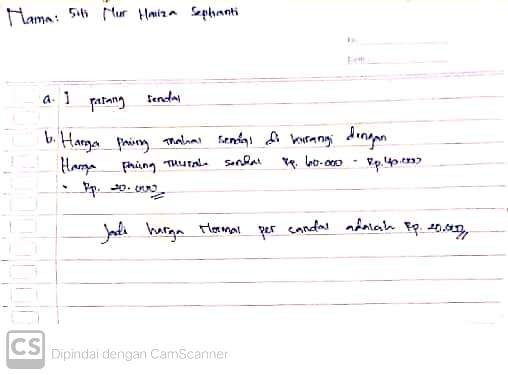 Nama: Siti Nur Hariza Septianti
a. 1 pasang sendal
b. Harga paling mahal sendal di kurangi dengan
Harga paling murah sendal Rp. 60.000 - Rp. 40.000
= Rp. 20.000
Jadi harga normal per sandal adalah Rp. 20.000
CS Dipindai dengan CamScanner